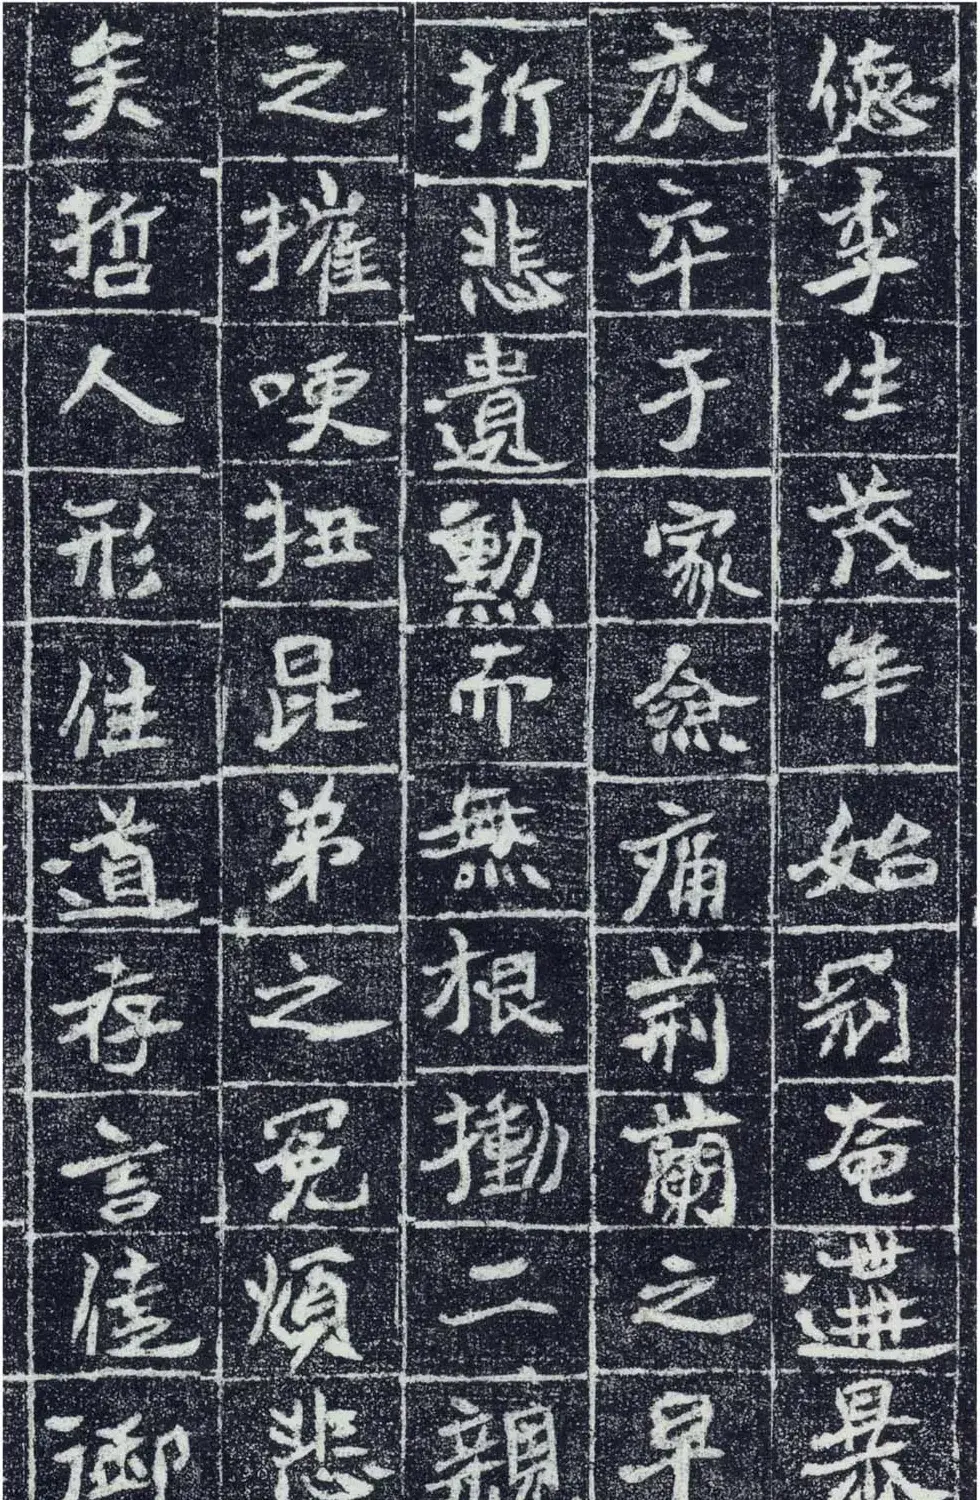 德季生茂年始罰奄遘暴
疾卒于家僉痛荊蘭之早
折悲遺勳而無根慟二親
之摧哽扭昆弟之冤煩悲
矣哲人形往道存言佳御